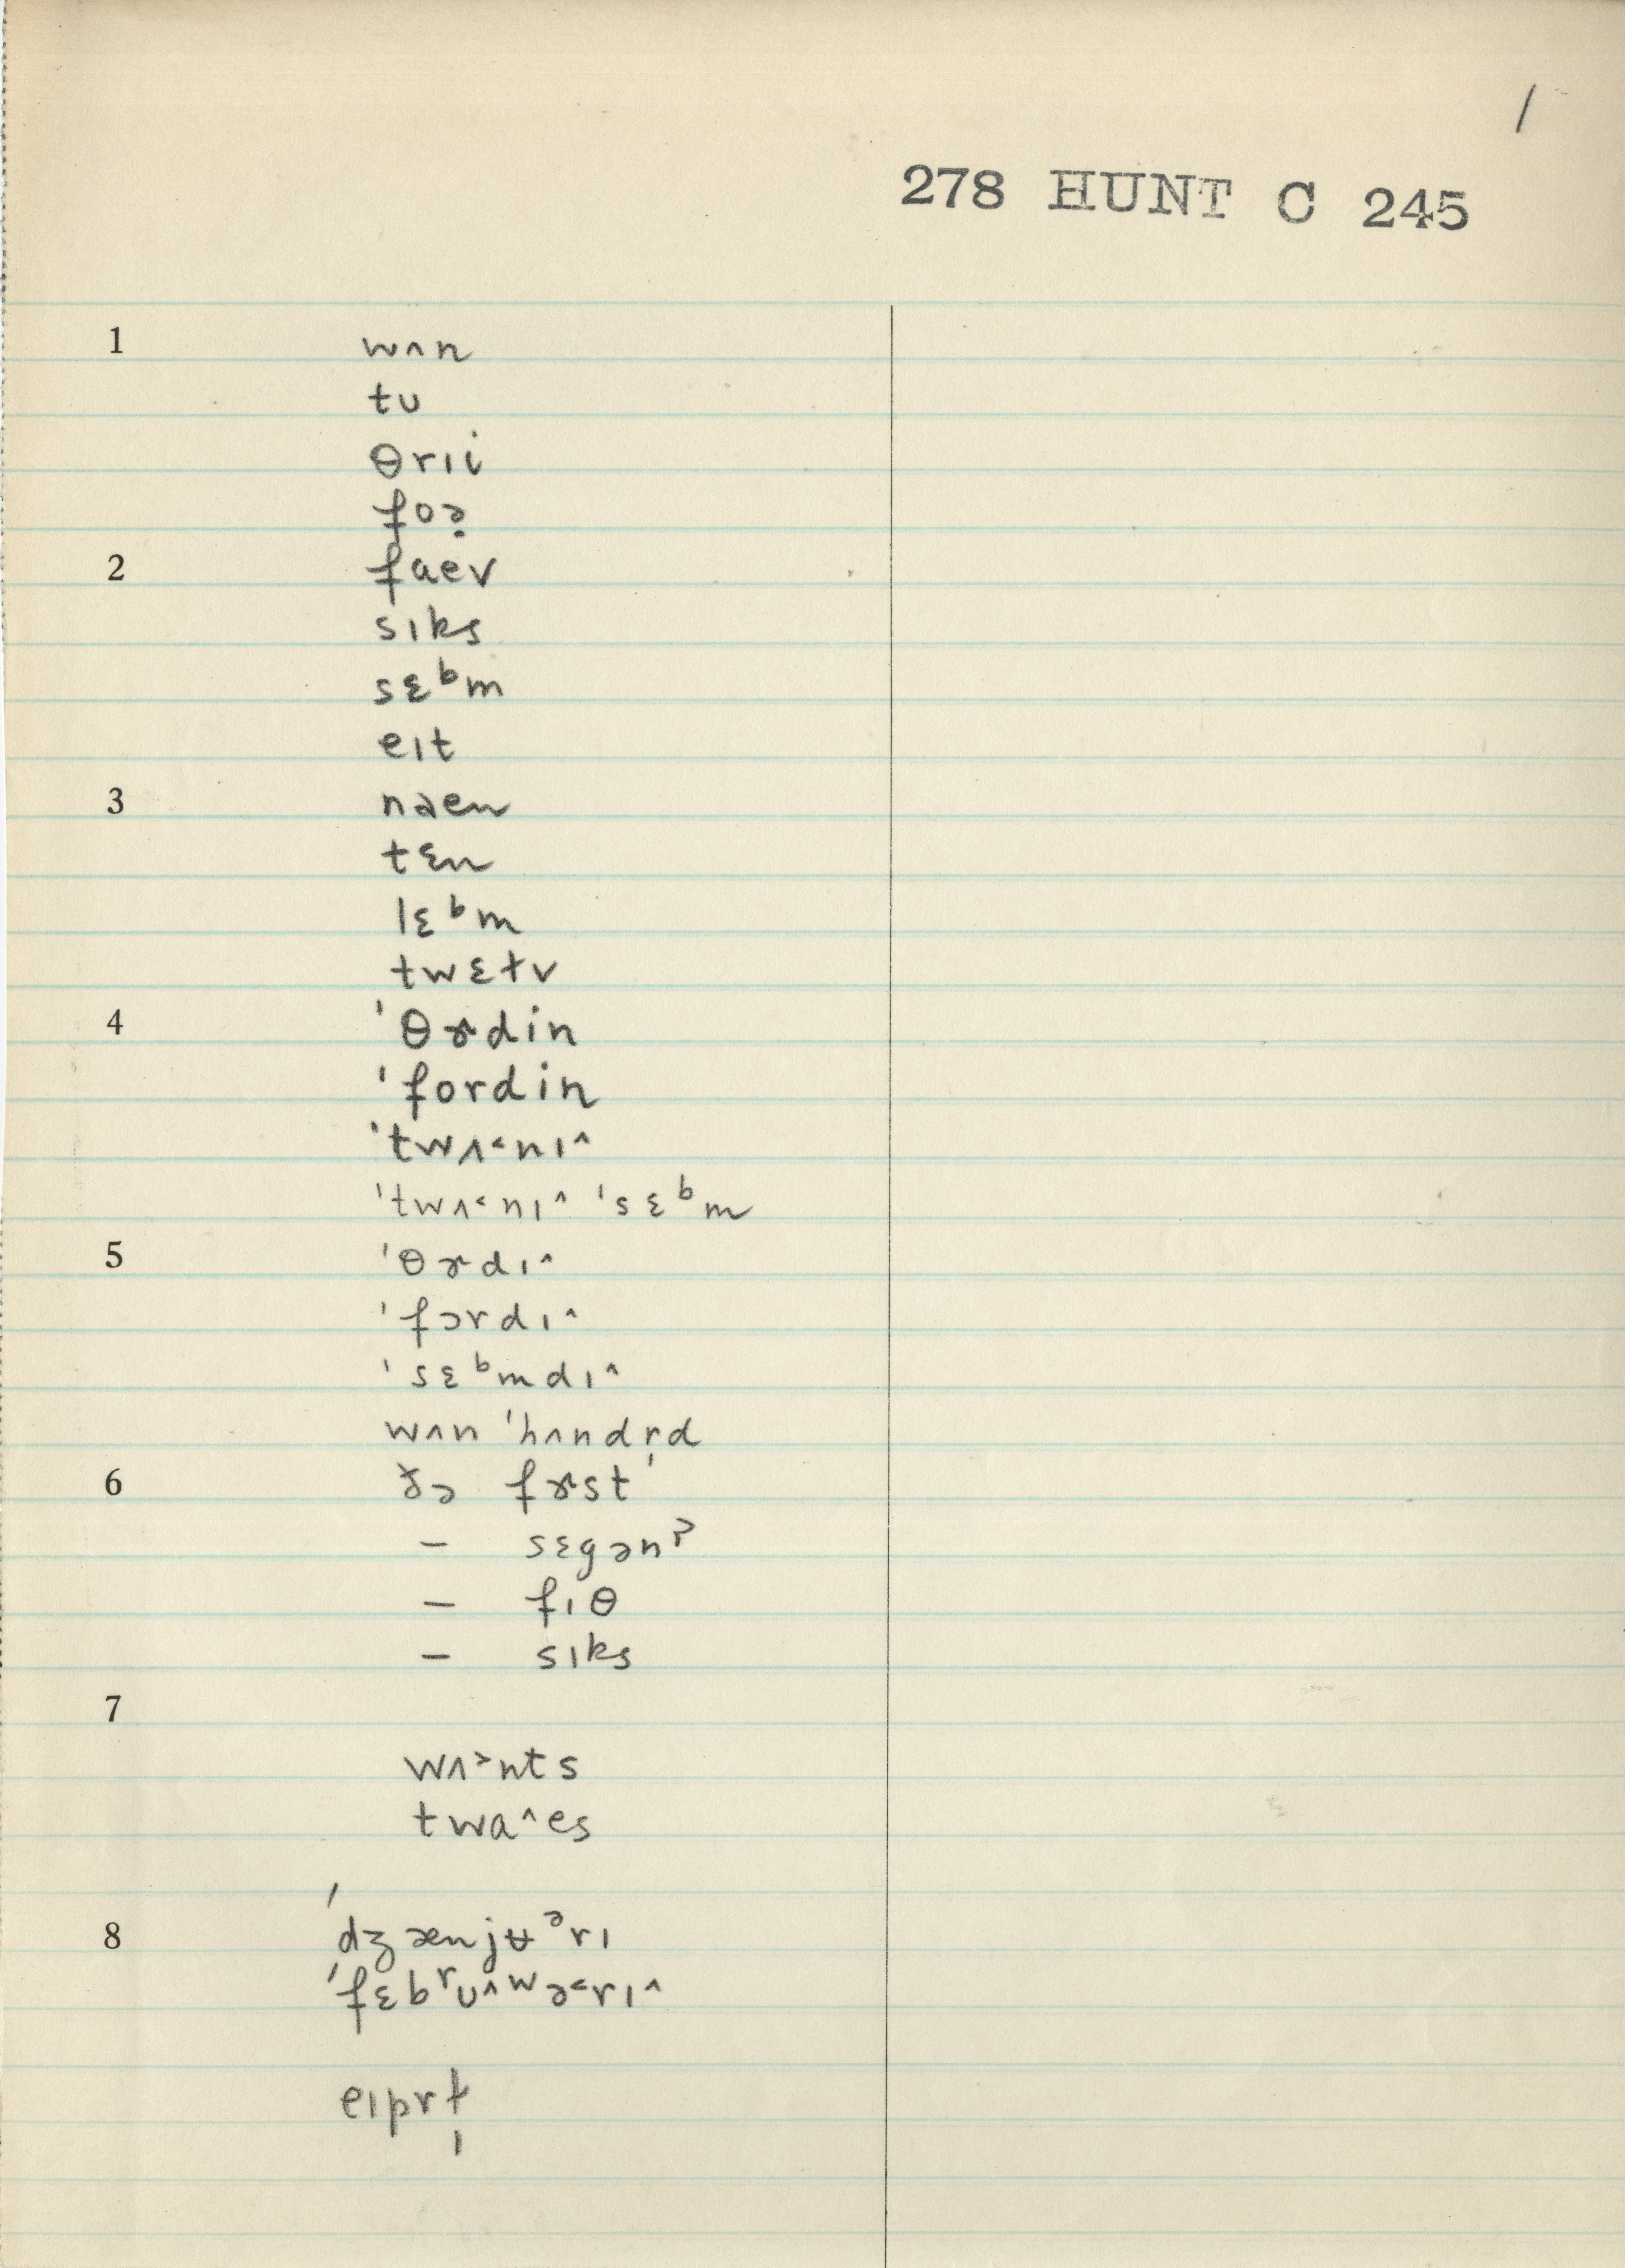 /
278 HUNT C 245
1 wʌn
tu
θrɪi
foə̣
2 faev
sɪks
sɛᵇm
eɪt
3 naen
tɛn
lɛᵇm
twɛtv
4 'θɝdin
'fordin
'twʌ˂nɪ˄
'twʌ˂nɪ˄ 'sɛᵇm
5 'θɝdɪ˄
'fɔrdɪ˄
'sɛᵇmdɪ˄
wʌn 'hʌndr̩d
6 ðə fɝst
– sɛgənˀ
– fɪθ
– sɪks
7
wʌ˃nts
twa˄es
8 'dʒænjʉᵊrɪ
'fɛbʳu˄ʷə˂rɪ˄
eɪprɫ̩